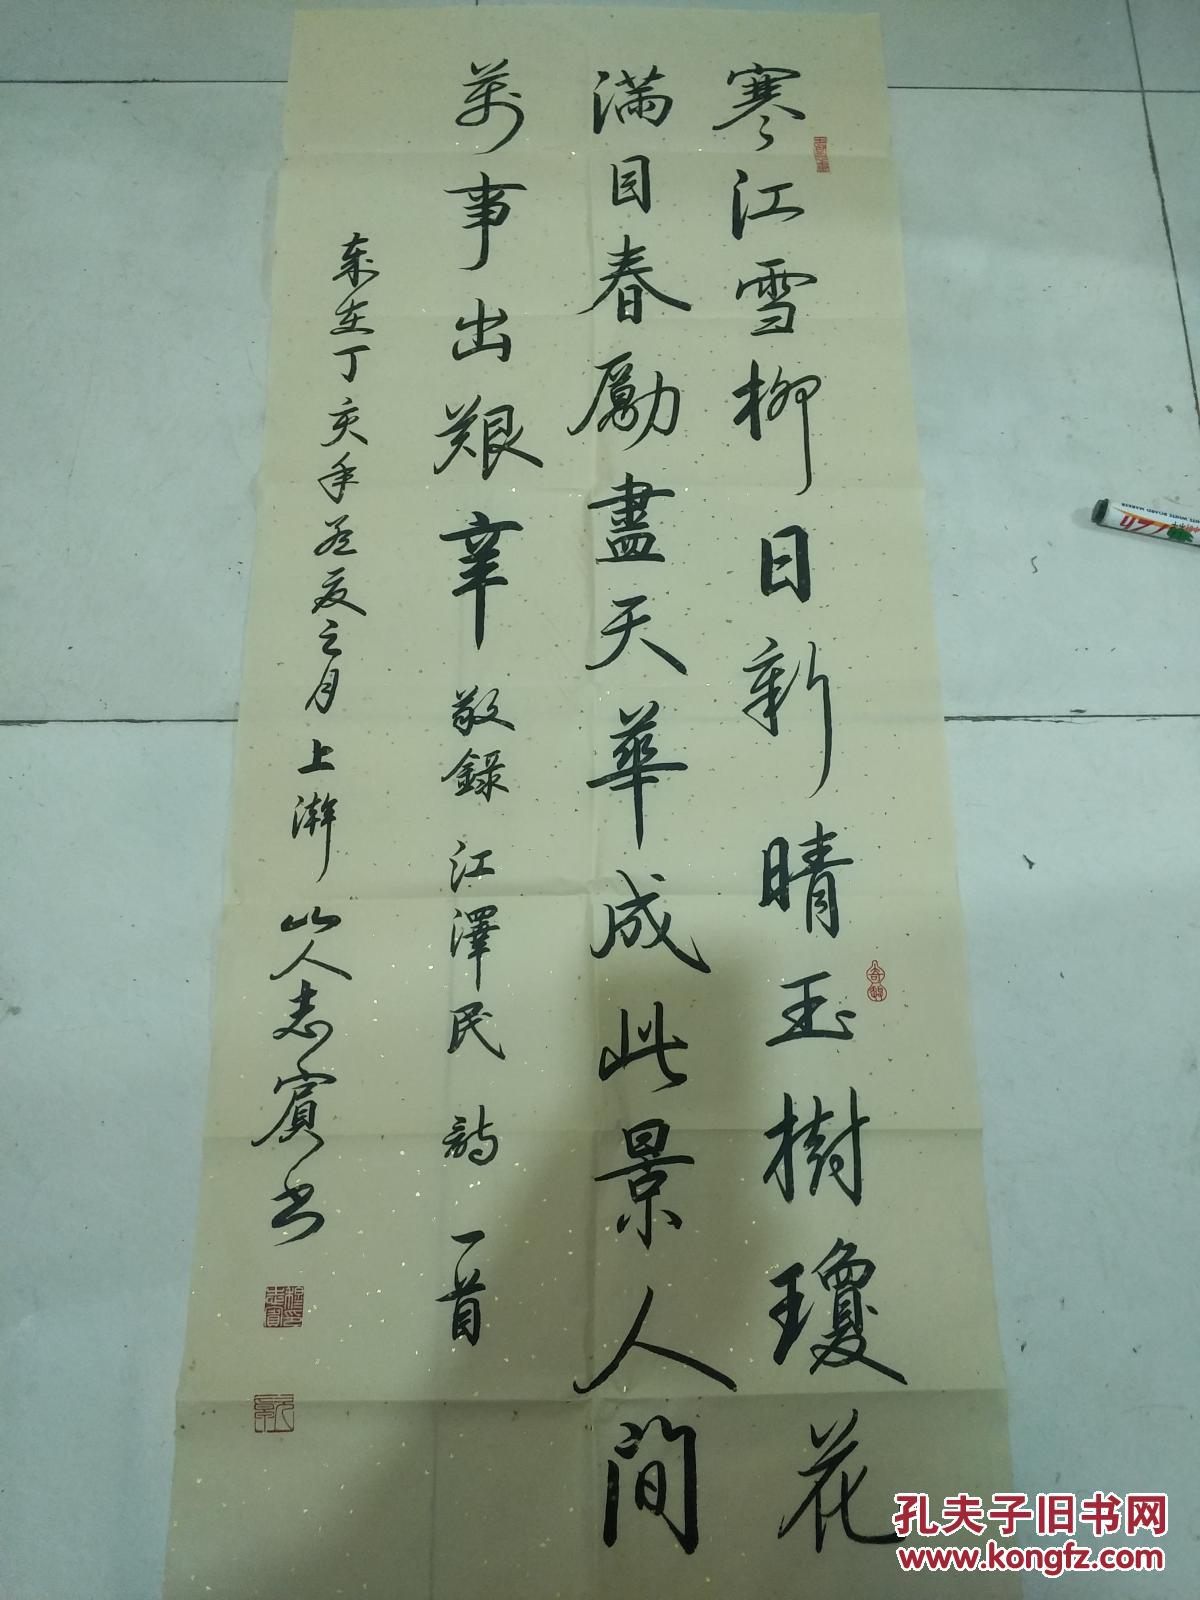 寒江雪柳日新晴玉樹瓊花
滿目春勵盡天華成此景人間
萬事出艱辛 敬錄江澤民詩一首
丁亥年
之月上澣山人志賓书
孔夫子旧书网
www.kongfz.com